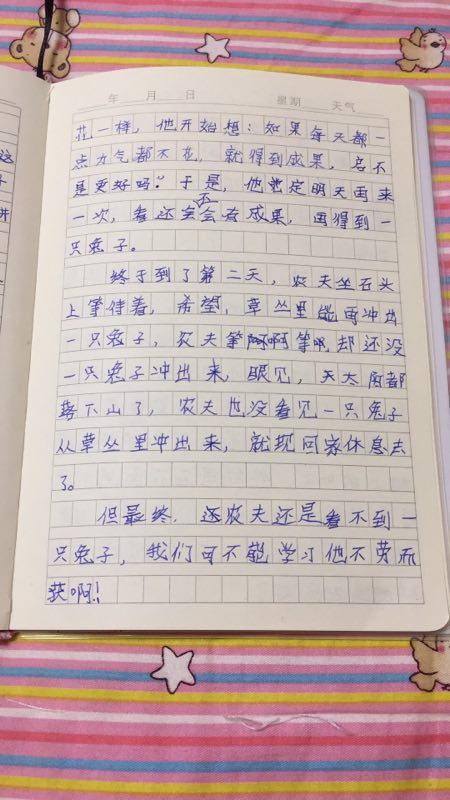 年 月 日 星期 天气
花一样，他开始想：如果每天都一
点力气都不花，就得到成果，岂不
是更好吗？于是，他决定明天再来
一次，看还会不会有成果，再得到一
只兔子。
终于到了第二天，农夫坐石头
上等待着，希望，草丛里能再冲出
一只兔子，农夫等啊啊等啊却还没
一只兔子冲出来，眼见，天太阳都
落下山了，农夫也没看见一只兔子
从草丛里冲出来，就现回家休息去
了。
但最终，还农夫还是看不到一
只兔子，我们可不能学习他不劳而
获啊！
这
子